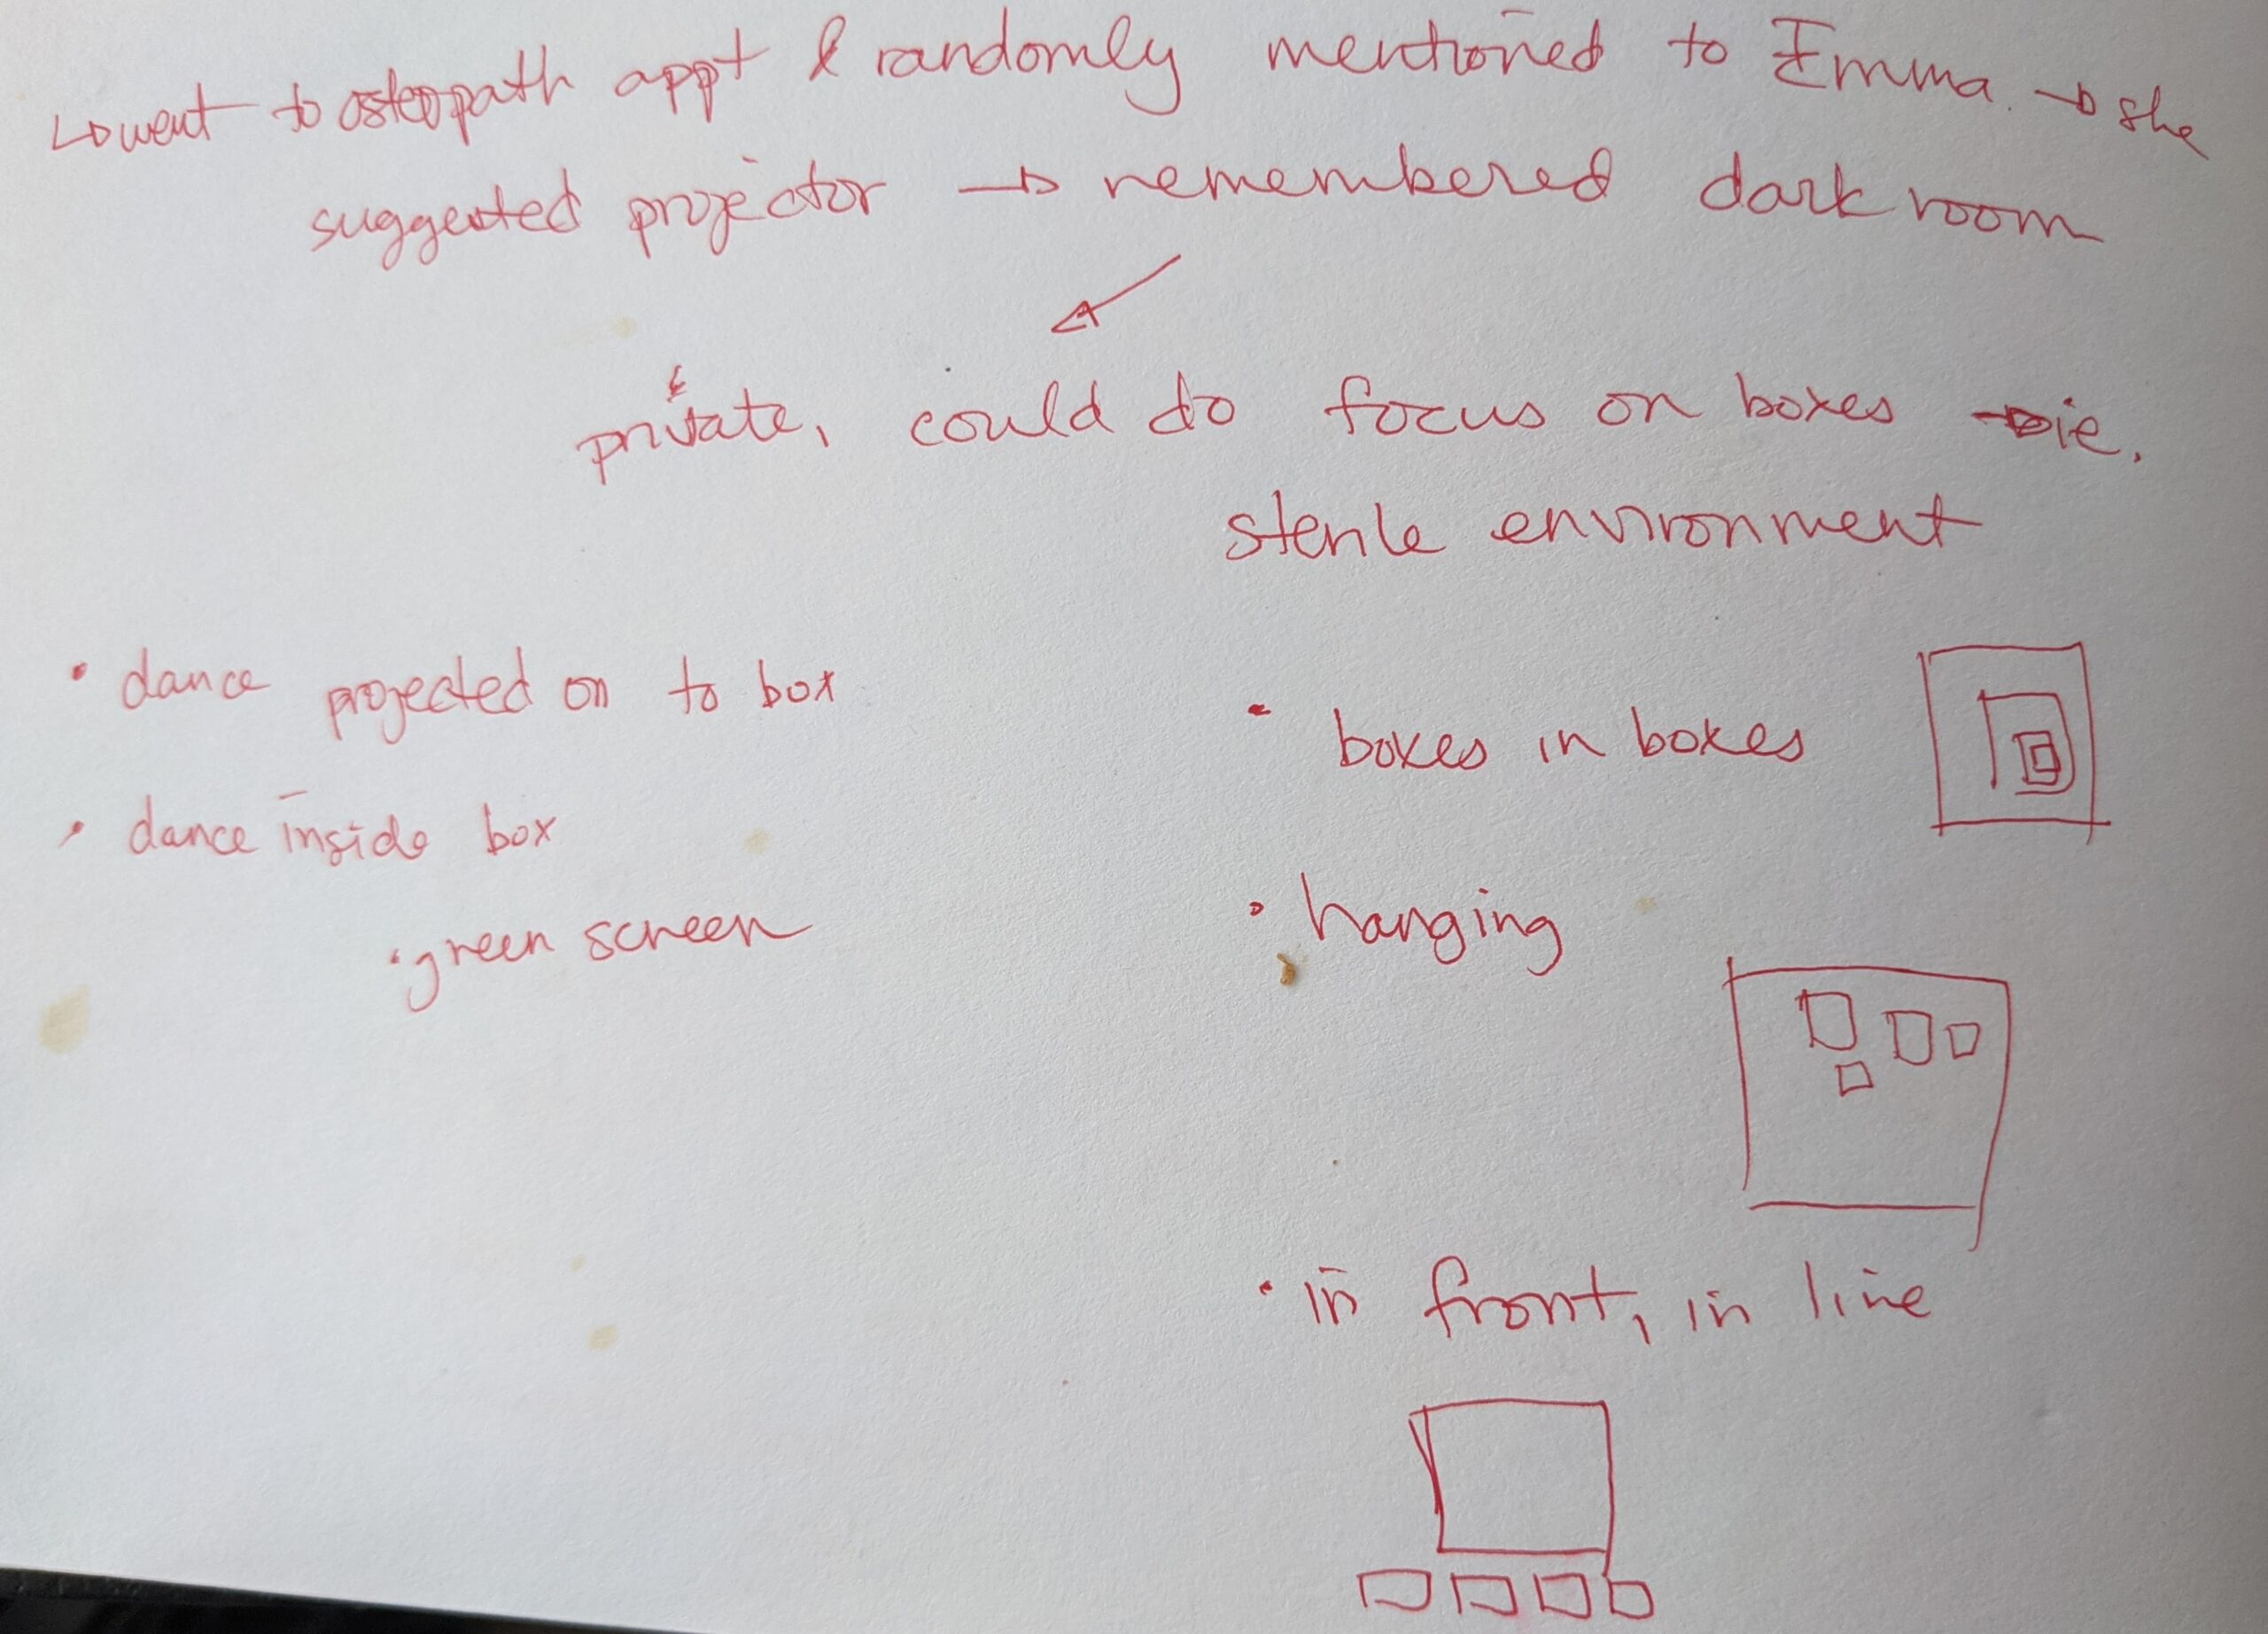 ↳ went to osteopath appt & randomly mentioned to Emma. → she
suggested projector → remembered dark room
private, could do focus on boxes → ie.
sterile environment
• dance projected on to box
• dance inside box
• green screen
• boxes in boxes
• hanging
• in front, in line